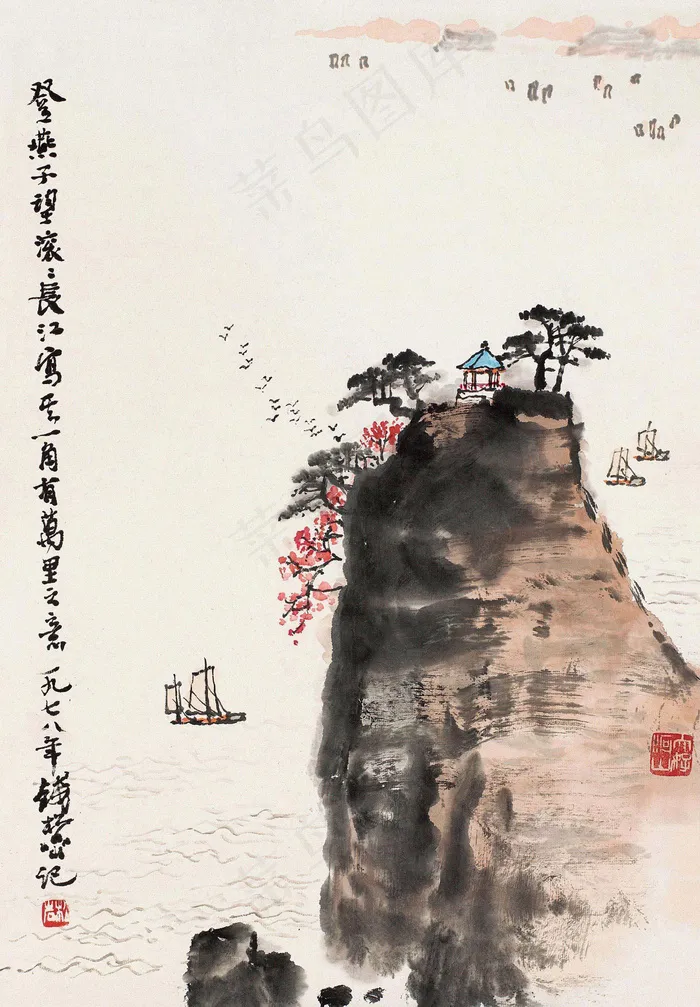 登燕子望滚〻長江寫其一角有萬里之意 一九七八年 錢松嵒記
菜鸟图库